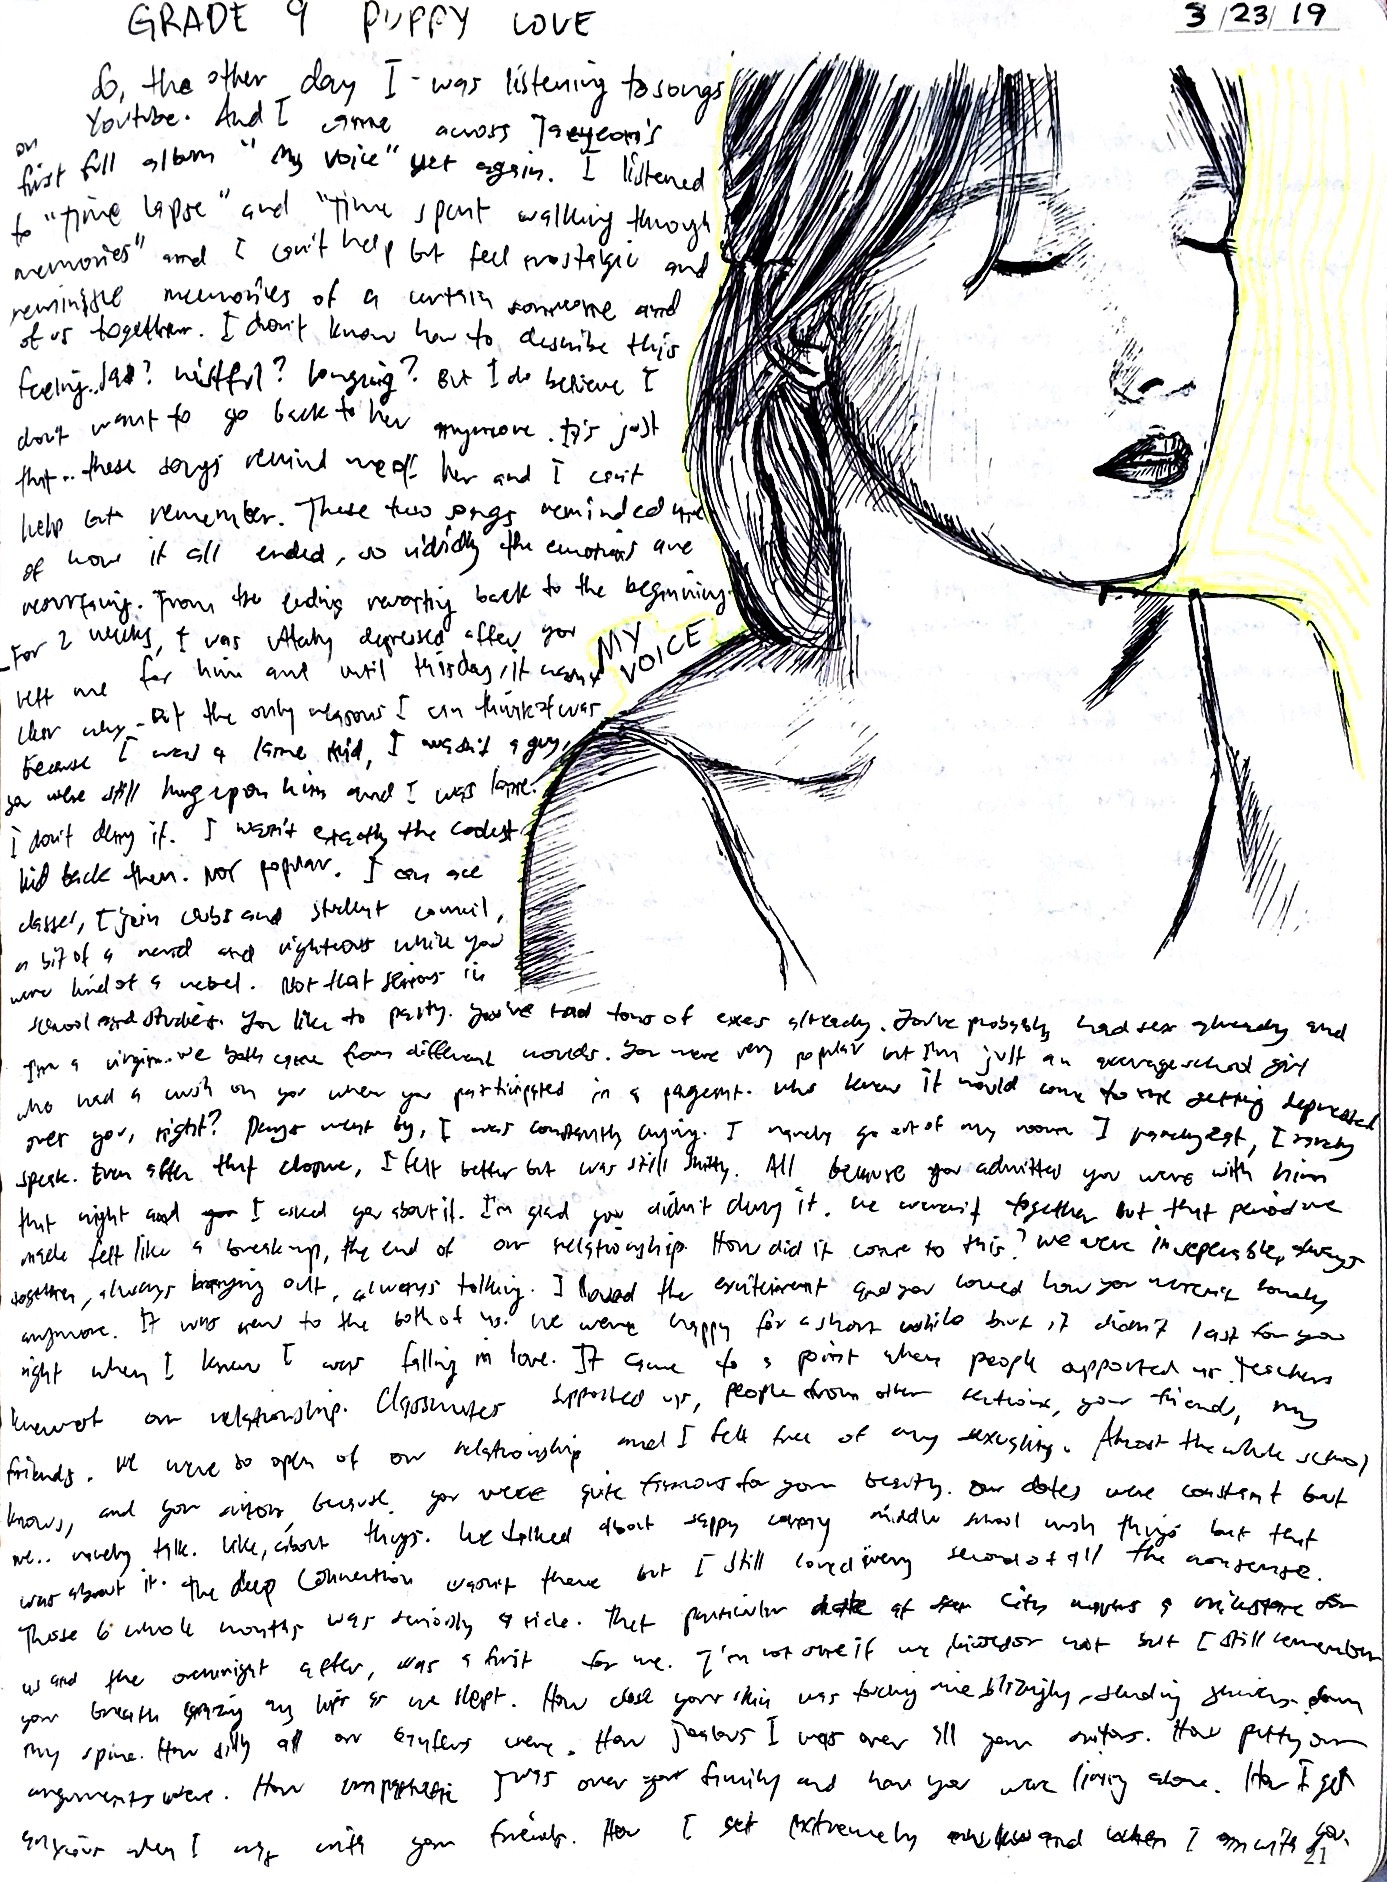 GRADE 9 PUPPY LOVE
3/23/19
So, the other day I was listening to songs
on Youtube. And I came across Taeyeon's
first full album "My Voice" yet again. I listened
to "Time lapse" and "Time spent walking through
memories" and I can't help but feel nostalgic and
memories of a certain someone and
of us together. I don't know how to describe this
feeling.. sad? wistful? longing? But I do believe I
don't want to go back to her anymore. It's just
that.. these songs remind me of her and I can't
help but remember. These two songs reminded me
of how it all ended, so vividly the emotions are
resurfacing. From the ending reverting back to the beginning.
For 2 weeks, I was utterly depressed after you
left me for him and until this day, it wasn't
clear why. But the only reasons I can think of was
because I was a lame kid, I wasn't a guy,
you were still hung upon him and I was lame.
I don't deny it. I wasn't exactly the coolest
kid back then. Nor popular. I can ace
classes, I join clubs and student council,
a bit of a nerd and righteous while you
were kind of a rebel. Not that serious in
school and studies. You like to party. You've had tons of exes already. You've probably had sex already and
I'm a virgin. We both came from different worlds. You were very popular but I'm just an average school girl
who had a crush on you when you participated in a pageant. Who knew it would come to me getting depressed
over you, right? Days went by, I was constantly crying. I rarely go out of my room I rarely eat, I rarely
speak. Even after that closure, I felt better but was still shitty. All because you admitted you were with him
that night and I asked you about it. I'm glad you didn't deny it. We weren't together but that period we
made felt like a breakup, the end of our relationship. How did it come to this? We were inseperable, always
together, always hanging out, always talking. I loved the excitement and you loved how you weren't lonely
anymore. It was new to the both of us. We were happy for a short while but it didn't last for you
right when I knew I was falling in love. It came to a point where people supported us. Teachers
knew of our relationship. Classmates supported us, people from other sections, your friends, my
friends. We were so open of our relationship and I felt free of my sexuality. Almost the whole school
knows, and your suitors, because you were quite famous for your beauty. Our dates were constant but
we.. rarely talk. Like, about things. We talked about sappy corny middle school mush things but that
was about it. The deep connection wasn't there but I still loved every second of all the nonsense.
Those 6 whole months was seriously a ride. That particular date at City was a milestone for
us and the overnight after, was a first for me. I'm not sure if we kissed or not but I still remember
your breath grazing my lips as we slept. How close your skin was touching mine, sending shivers down
my spine. How silly all our were. How jealous I was over all your suitors. How petty our
arguments were. How empathetic I was over your family and how you were living alone. How I get
anxious when I am with your friends. How I get extremely awkward when I am with you.
MY VOICE
21